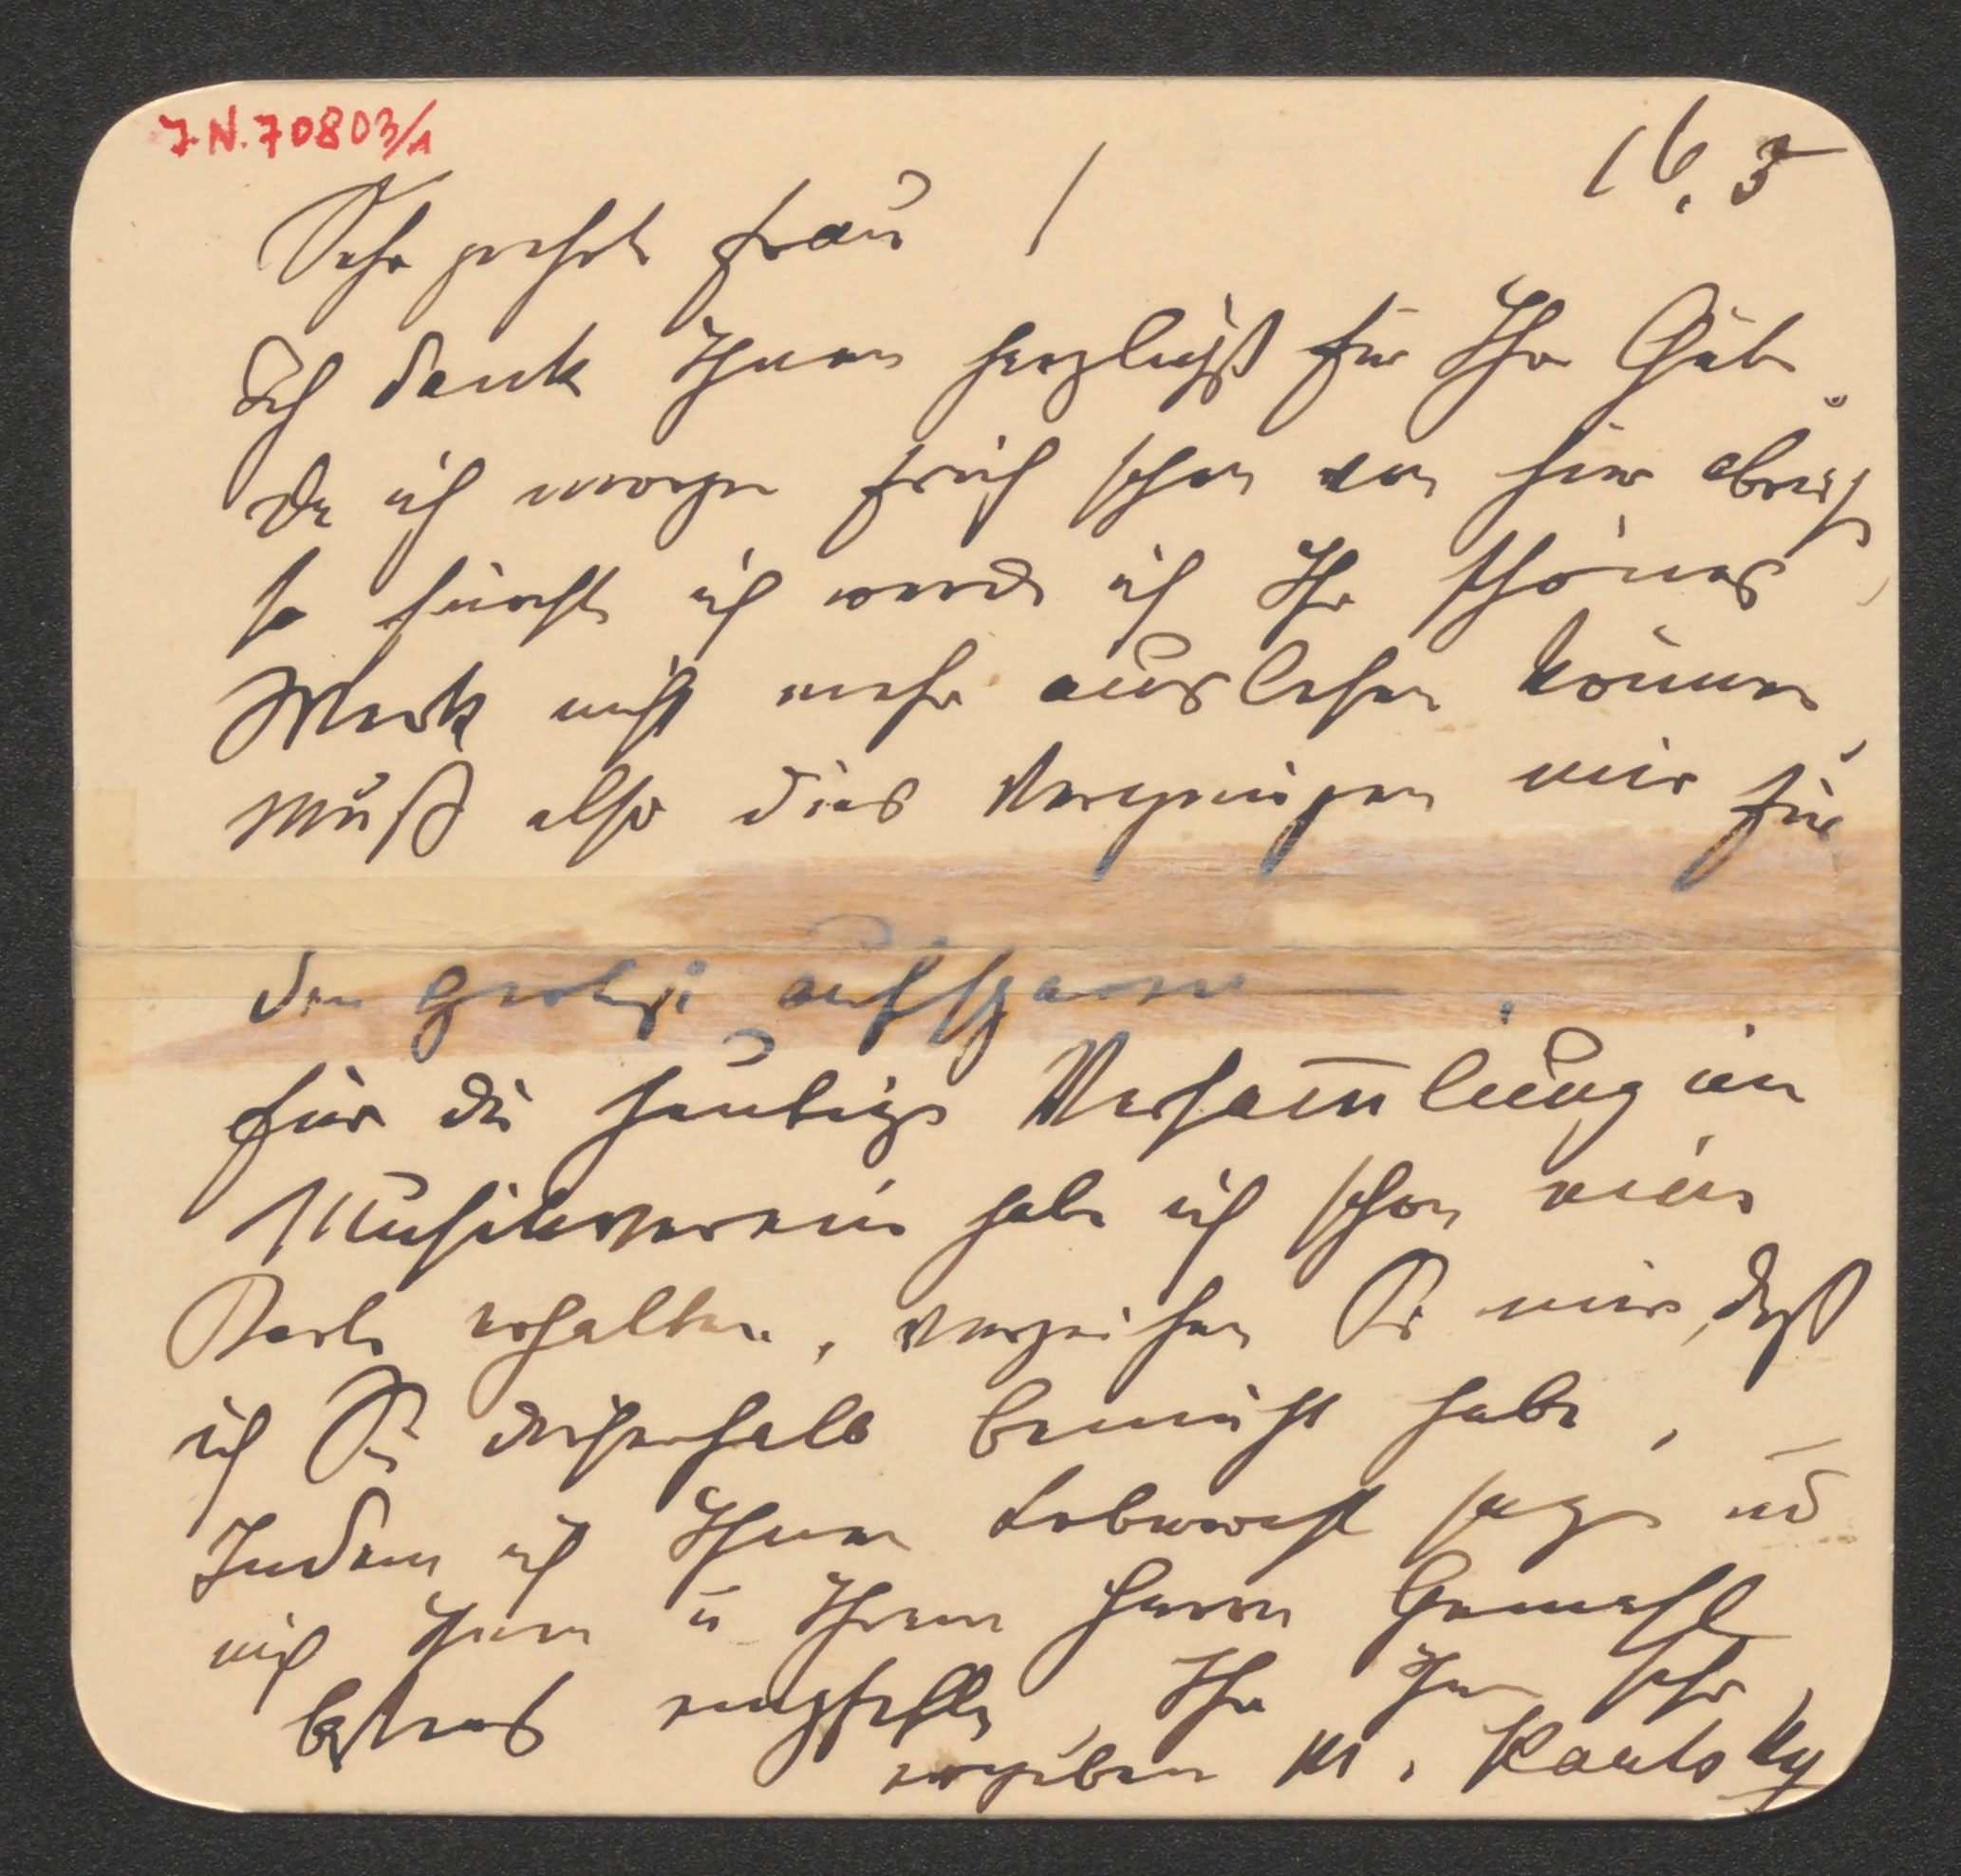 J.N. 70803/1
16. 3
Sehr geehrte Frau !
Ich danke Ihnen herzlichst für Ihre Güte.
Da ich morgen früh schon von hier abreise
so fürchte ich werde ich Ihr schönes
Werk nicht mehr auslesen können,
muß also dies Vergnügen mir für
den aufsparen.
für die heutige Versam̅lung im
Musikverein habe ich schon eine
Karte erhalten, verzeihen Sie mir, daß
ich Sie dieserhalb bemüht habe,
Indem ich Ihnen Lebewohl sage ud
mich Ihnen u Ihrem Herrn Gemahl
bestens empfehle, Ihr Ihnen sehr
ergebener M. Kautsky